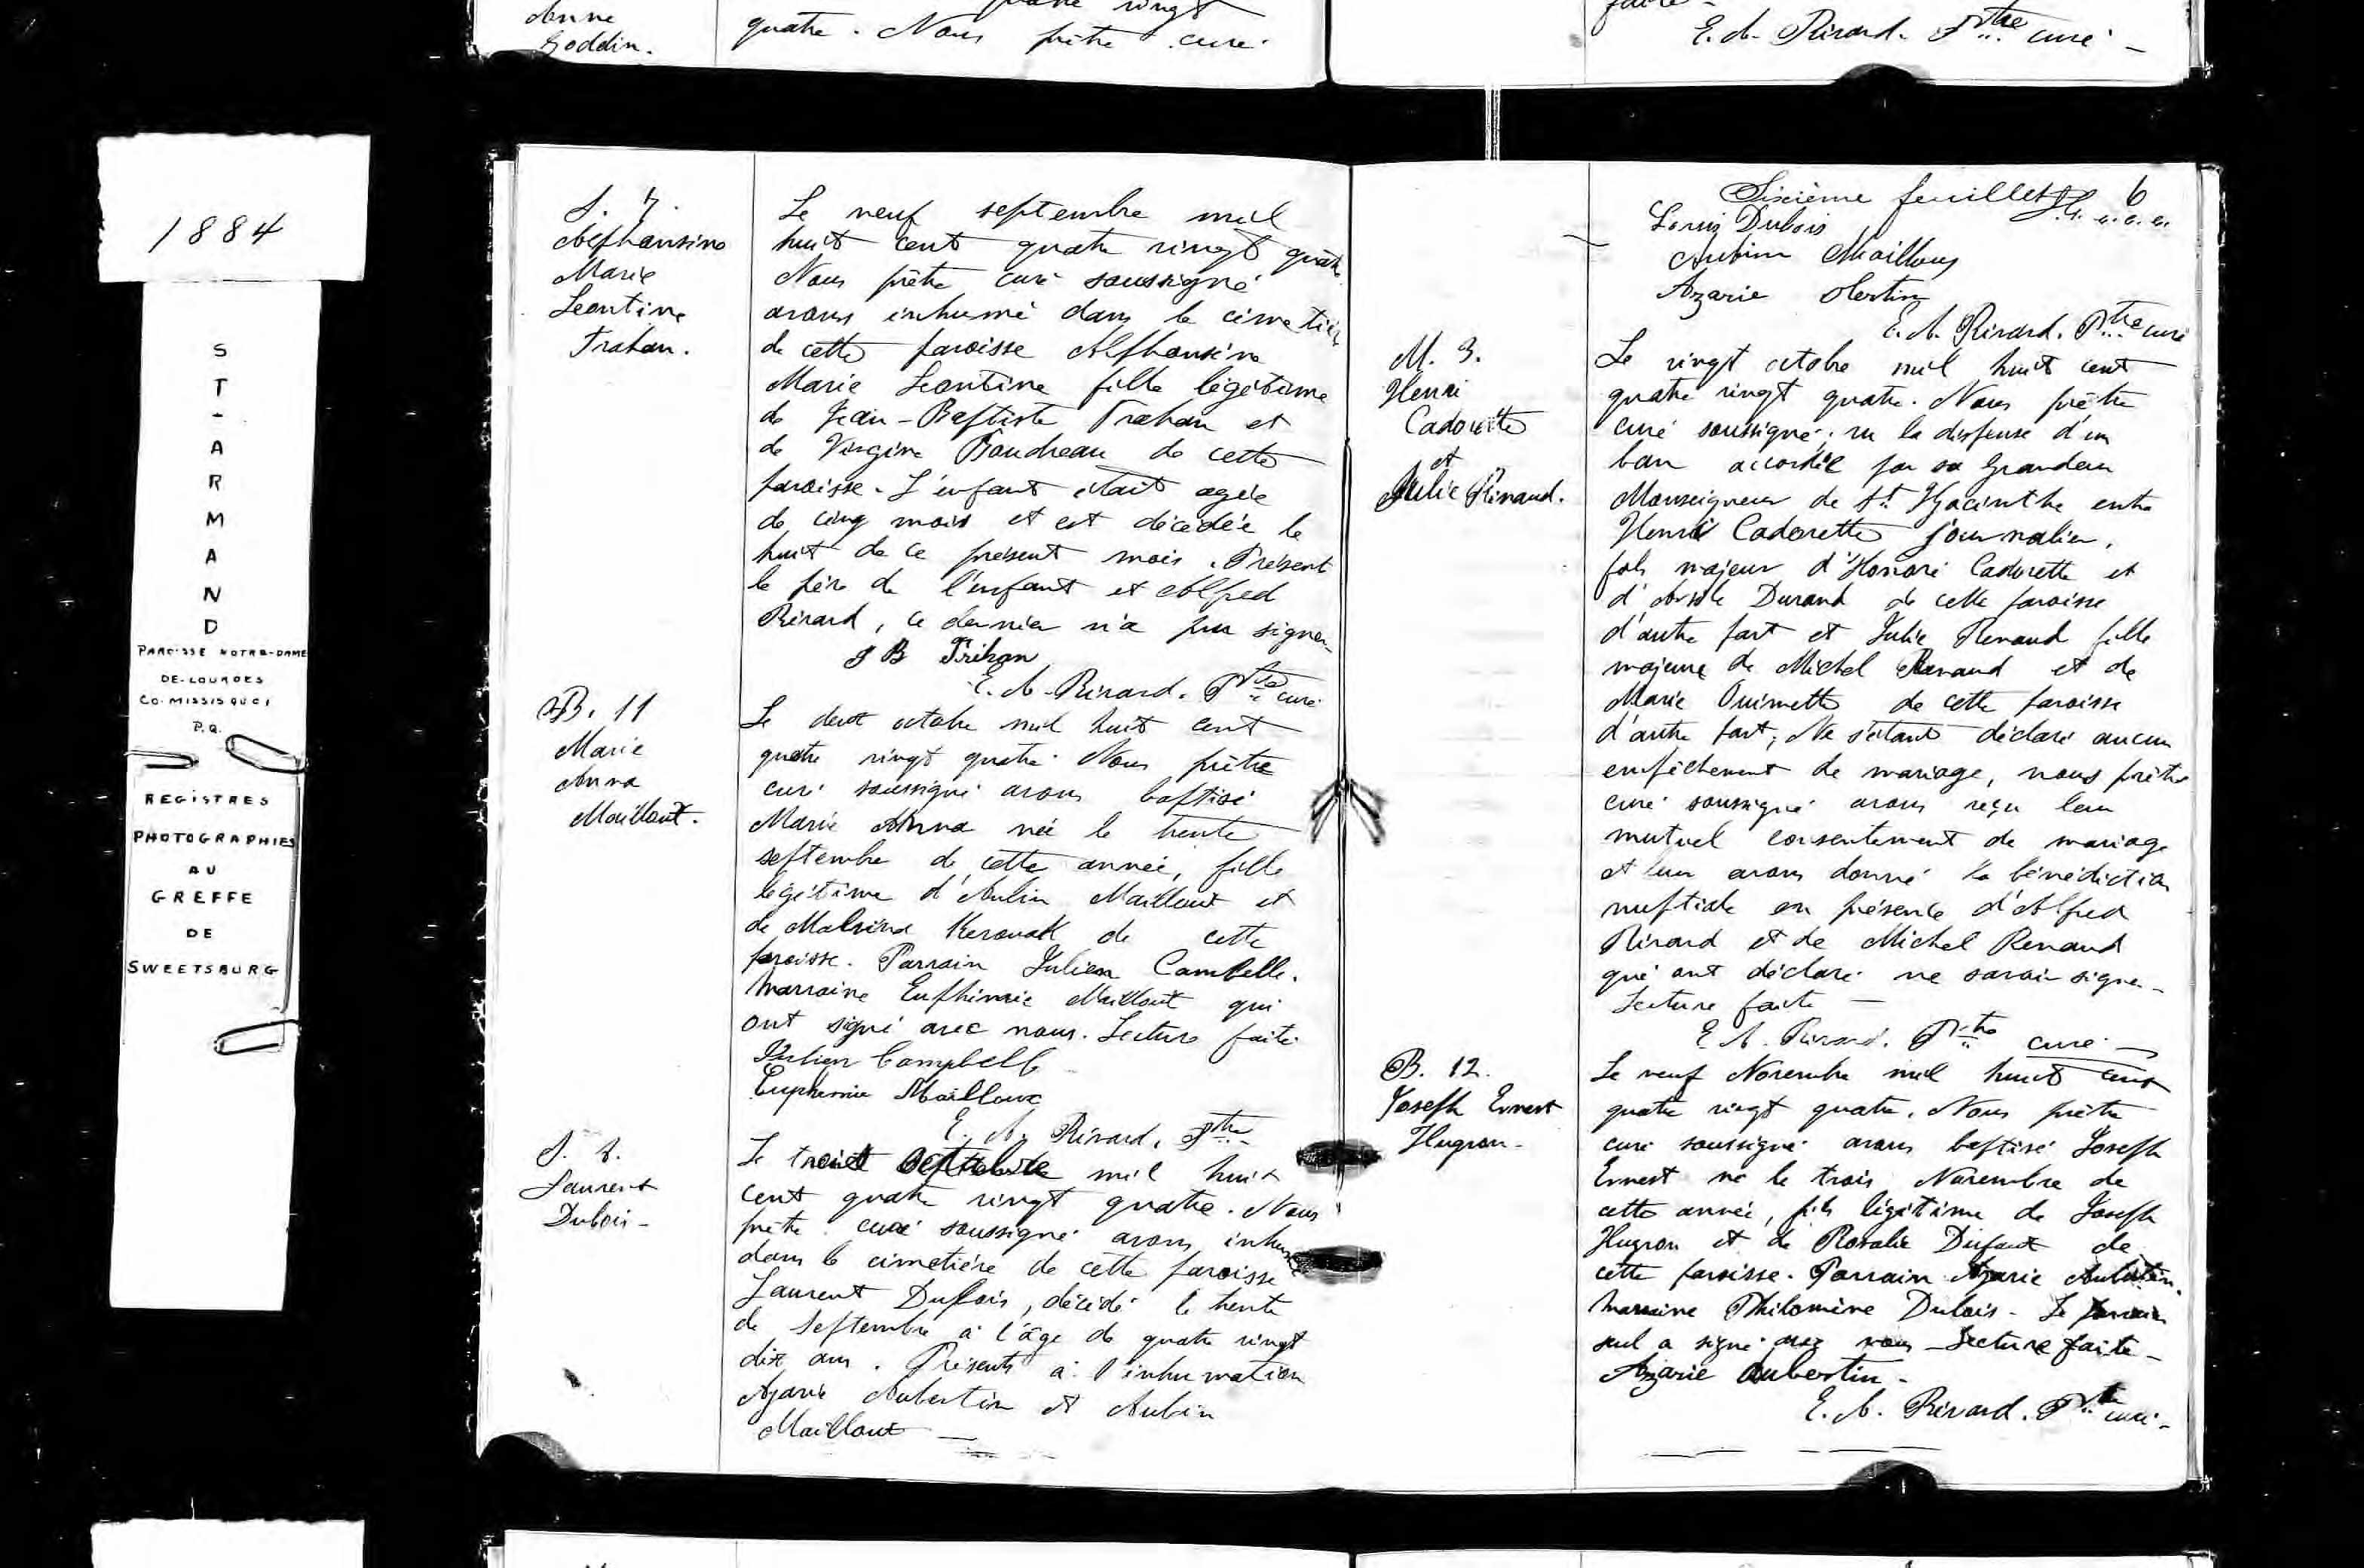 Anne
Goddin.
quatre. Nous prêtre curé
E. A. Rivard. Ptre curé
1884
ST-ARMAND
PAROISSE NOTRE-DAME
DE-LOURDES
CO-MISSISQUOI
P.Q.
REGISTRES
PHOTOGRAPHIES
AU
GREFFE
DE
SWEETSBURG
S. 7.
Alphonsine
Marie
Leontine
Trahan.
Le neuf septembre mil
huit cent quatre vingt quatre
Nous prêtre curé soussigné
avons inhumé dans le cimetière
de cette paroisse Alphonsine
Marie Leontine fille légitime
de Jean-Baptiste Trahan et
de Virgine Boudreau de cette
paroisse. L'enfant était agée
de cinq mois et est décédée le
huit de ce présent mois. Présent
le père de l'enfant et Alfred
Rivard, ce dernier n'a pu signer
J B Trihan
E. A. Rivard. Ptre curé
B. 11
Marie
Anna
Mailloux.
Le deux octobre mil huit cent
quatre vingt quatre. Nous prêtre
curé soussigné avons baptisé
Marie Anna née le trente
septembre de cette année, fille
légitime d'Aubin Mailloux et
de Malvina Kerouak de cette
paroisse. Parrain Julien Cambelle.
Marraine Euphémie Mailloux qui
ont signé avec nous. Lecture faite
Julien Campbell
Euphemie Mailloux
E. A. Rivard. Ptre
S. 8.
Laurent
Dubois
Le mil huit
cent quatre vingt quatre. Nous
prêtre curé soussigné avons inhumé
dans le cimetière de cette paroisse
Laurent Dubois, décédé le trente
de Septembre à l'âge de quatre vingt
dix ans. Présents à l'inhumation
Azarie Aubertin et Aubin
Mailloux
Sixième feuillet 6
Louis Dubois
Aubin Mailloux
Azarie
E. A. Rivard. Ptre curé
M. 3.
Henri
Cadorette
et
Julie Renaud.
Le vingt octobre mil huit cent
quatre vingt quatre. Nous prêtre
curé soussigné, vu la dispense d'un
ban accordée par sa Grandeur
Monseigneur de St. Hyacinthe entre
Henri Cadorette journalier,
fils majeur d'Honoré Cadorette et
d' Durand de cette paroisse
d'autre part et Julie Renaud fille
majeure de Michel Renaud et de
Marie Ouimette de cette paroisse
d'autre part; Ne s'étant déclaré aucun
empêchement de mariage, nous prêtre
curé soussigné avons reçu leur
mutuel consentement de mariage
et leur avons donné la bénédiction
nuptiale en présence d'Alfred
Rivard et de Michel Renaud
qui ont déclaré ne savoir signer
Lecture faite
E. A. Rivard. Ptre curé
B. 12.
Joseph Ernest
Hugron
Le neuf Novembre mil huit cent
quatre vingt quatre. Nous prêtre
curé soussigné avons baptisé Joseph
Ernest né le trois Novembre de
cette année, fils légitime de Joseph
Hugron et de Rosalie Dufaut de
cette paroisse. Parrain Azarie Aubertin.
Marraine Philomène Dubois. Le parrain
seul a signé avec nous Lecture faite
Azarie Aubertin
E. A. Rivard. Ptre curé